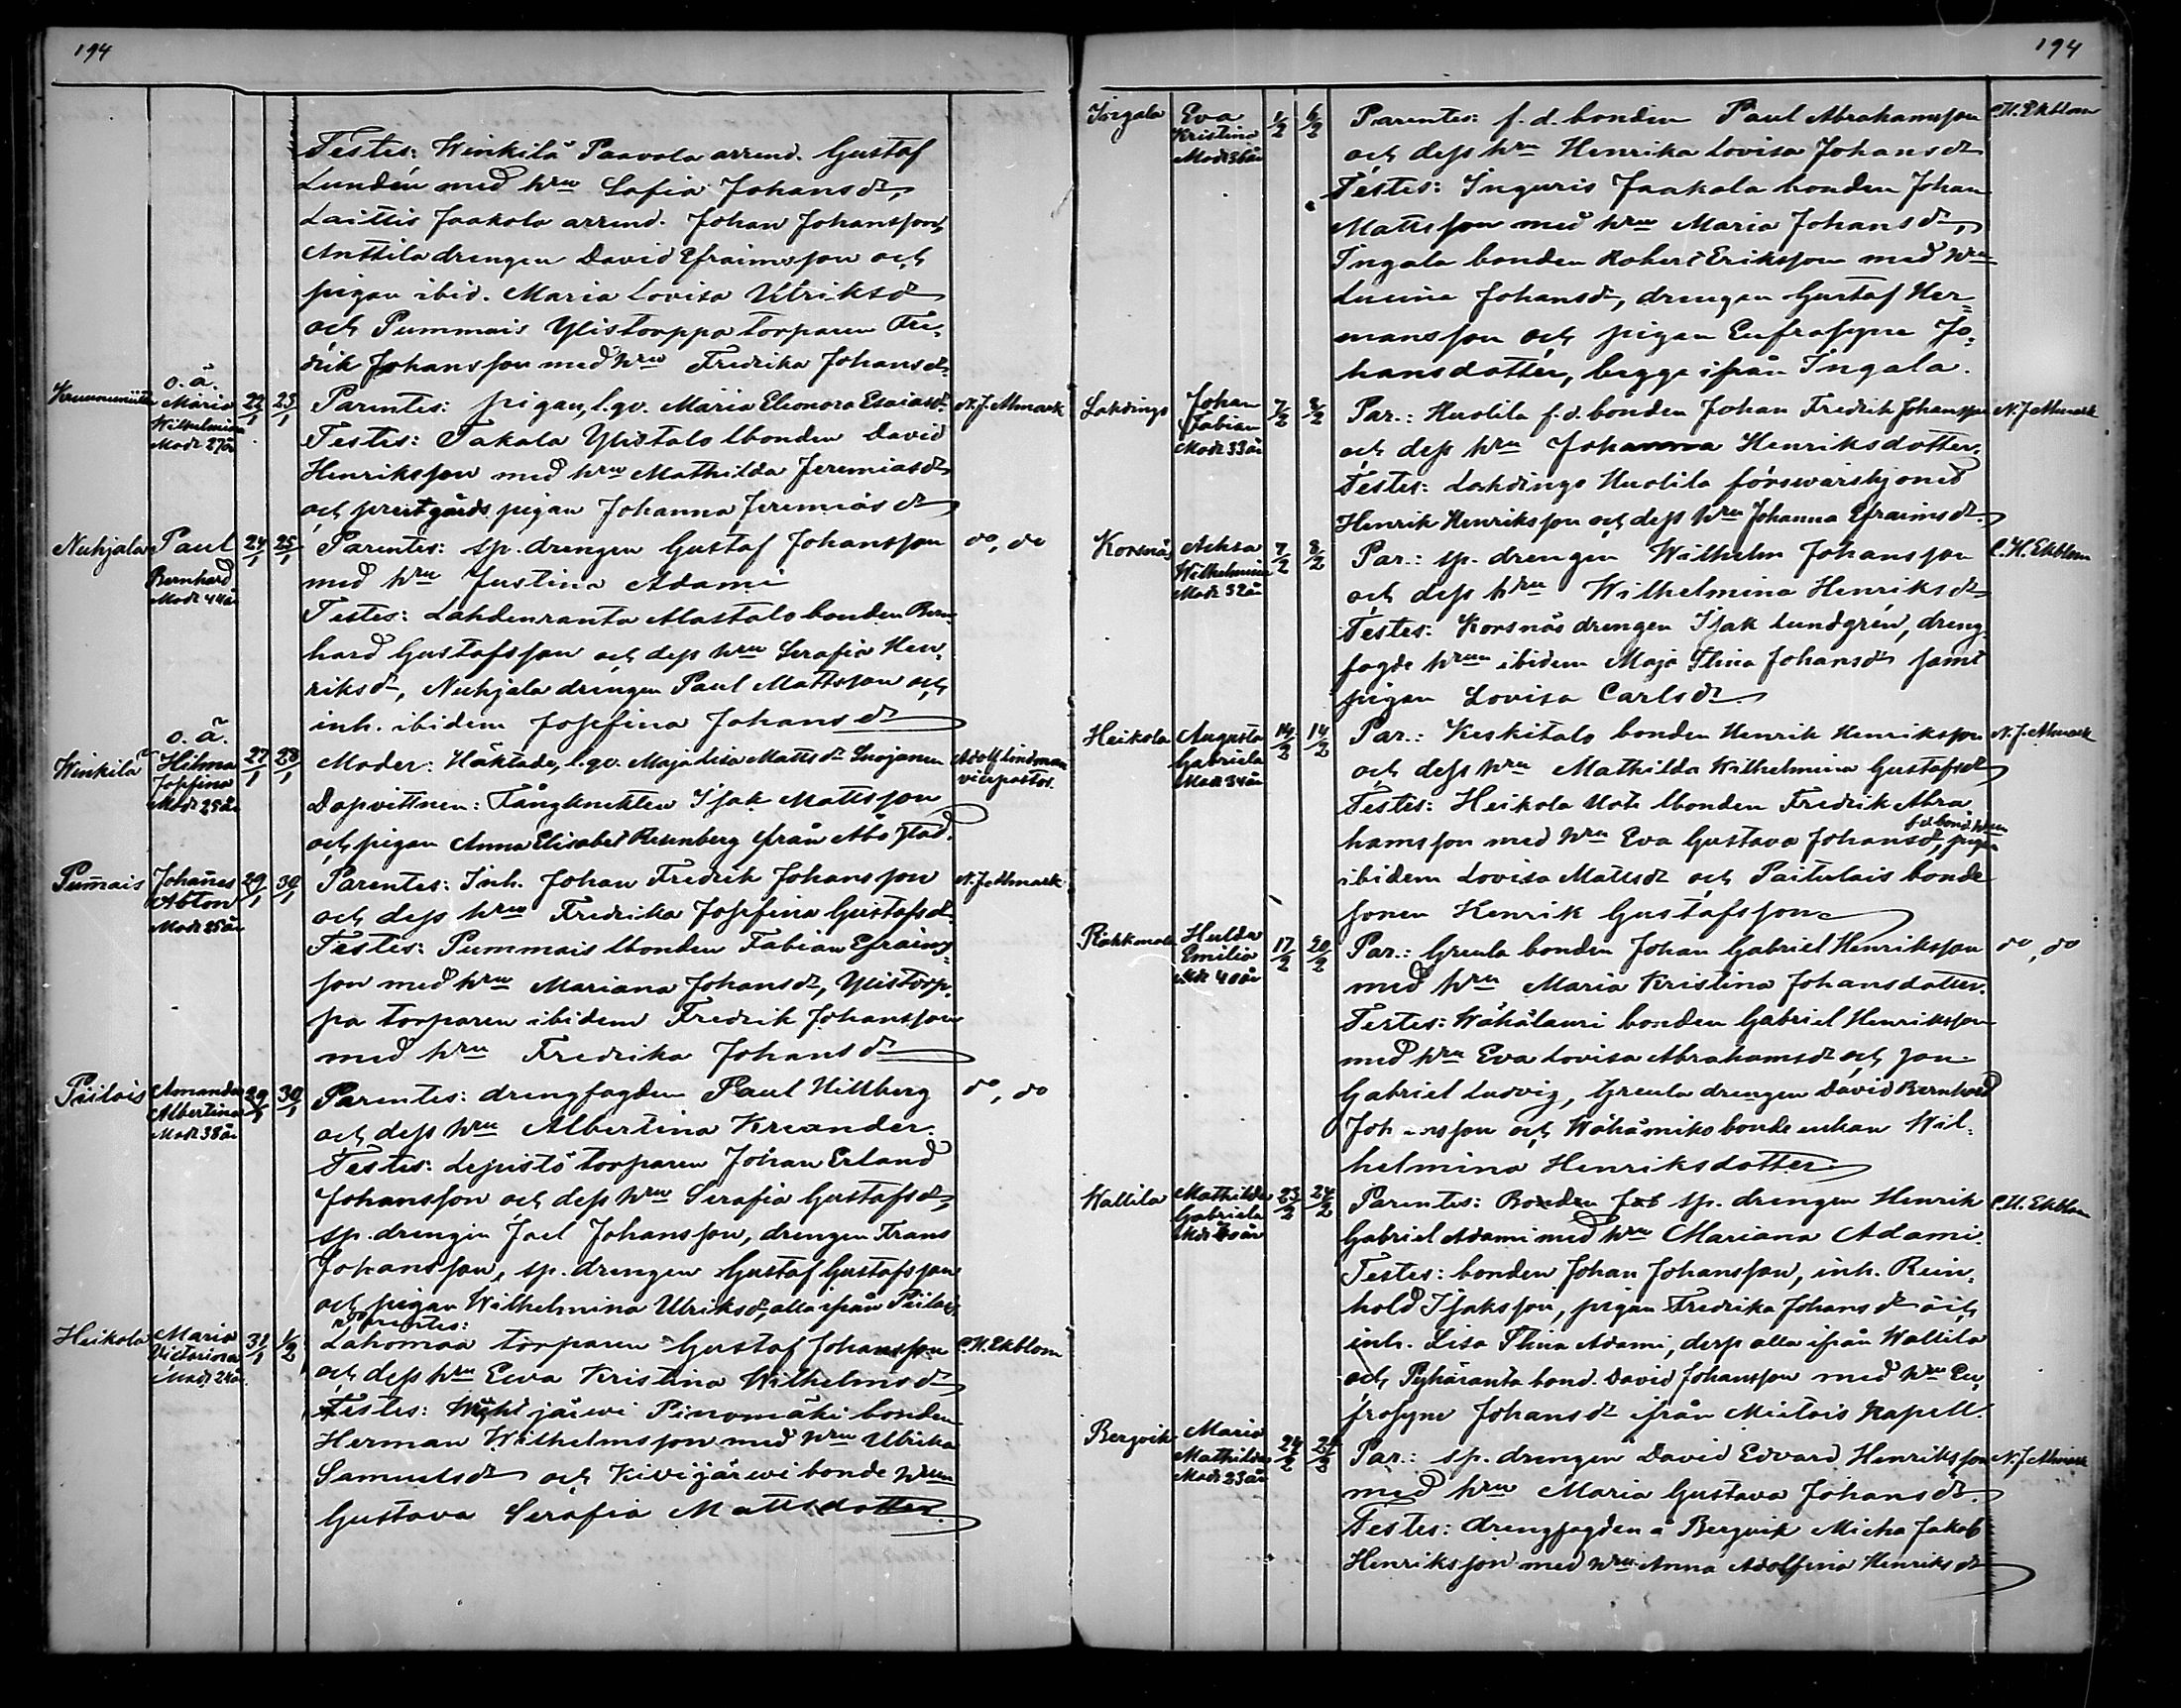 194
Testes: Winkilä Paavola arrend. Gustaf
Lundén med hru Sofia Johansdr,
Laittis Jaakola arrend. Johan Johansson,
Anttila drengen David Efraimsson och
pigan ibid. Maria Lovisa Ulriksdr
och Pummais Ylistorppa torparen Fre-
drik Johansson med hru Fredrika Johansdr.
o.ä.
Maria
Wilhelmina
Modr 27 år
22/1 23/1
Parentes: pigan, l.qv. Maria Eleonora Esaiasdr.
N. J. Ahmark
Testes: Takala Ylistalo lbonden David
Henriksson med hru Mathilda Jeremiasdr
och prestgårds pigan Johanna Jeremiasdr
Nuhjala
Paul
Bernhard
Modr 44 år
24/1 25/1
Parentes: sp. drengen Gustaf Johansson
do, do
med hru Justina Adami
Testes: Lahdenranta Alastalo bonden Bern-
hard Gustafsson och dess hru Serafia Hen-
riksdr, Nuhjala drengen Paul Mattsson och
inh. ibidem Josefina Johansdr
Winkilä
o.ä.
Hilma
Josefina
Modr 25 år
27/1 28/1
Moder: Häktade, l.qv. Maja Lisa Mattsdr
Adolf Lindman
vicepastor.
Dopvittnen: Fångknekten Isak Mattsson
och pigan Anna Elisabet Rosenberg från Åbo stad.
Pum̄ais
Johan̄es
Anton
Modr 25 år
29/1 30/1
Parentes: Inh. Johan Fredrik Johansson
N. J. Ahmark
och dess hru Fredrika Josefina Gustafsdr.
Testes: Pummais lbonden Fabian Efraims-
son med hru Mariana Johansdr, Ylistorp-
pa torparen ibidem Fredrik Johansson
med hru Fredrika Johansdr
Piilois
Amanda
Albertina
Modr 38 år
29/1 30/1
Parentes: drengfogden Paul Hillberg
do, do
och dess hru Albertina Kreander.
Testes: Lepistö torparen Johan Erland
Johansson och dess hru Serafia Gustafsdr,
sp. drengen Joel Johansson, drengen Frans
Johansson, sp. drengen Gustaf Gustafsson
och pigan Wilhelmina Ulriksdr, alla ifrån Piilois
Parentes:
Heikola
Maria
Victorina
Modr 24 år.
31/1 1/2
Lahomaa torparen Gustaf Johansson
C. H. Ekblom
och dess hru Eva Kristina Wilhelmsdr
Testes: järwi Pinomäki bonden
Herman Wilhelmsson med hru Ulrika
Samuelsdr och Kivijärwi bonde hrun
Gustava Serafia Mattsdotter.
194
Ingala
Eva
Kristina
Modr 36 år
1/2 6/2
Parentes: f.d. bonden Paul Abrahamsson
C. H. Ekblom
och dess hru Henrika Lovisa Johansdr
Testes: Inguris Jaakola bonden Johan
Mattsson med hru Maria Johansdr,
Ingala bonden Robert Eriksson med hru
Lucina Johansdr, drengen Gustaf Her-
mansson och pigan Eufrosyne Jo-
hansdotter, begge ifrån Ingala.
Lahdingo
Johan
Fabian
Modr 33 år
7/2 8/2
Par.: Huolila f.d. bonden Johan Fredrik Johansson
N. J. Ahmark
och dess hru Johanna Henriksdotter.
Testes: Lahdingo Huolila förswarshjoned
Henrik Henriksson och dess hru Johanna Efraimsdr.
Korsnäs
Achsa
Wilhelmina
Modr 32 år
7/2 8/2
Par.: sp. drengen Wilhelm Johansson
C. H. Ekblom
och dess hru Wilhelmina Henriksdr
Testes: Korsnäs drengen Isak Lundgrén, dreng-
fogde hrun ibidem Maja Stina Johansdr samt
pigan Lovisa Carlsdr
Heikola
Augusta
Gabriela
Modr 34 år
14/2 14/2
Par.: Keskitalo bonden Henrik Henriksson
N. J. Ahmark
och dess hru Mathilda Wilhelmina Gustafsdr
Testes: Heikola lbonden Fredrik Abra
hamsson med hru Eva Gustava Johansdr,
f.d. bond. hrun
ibidem Lovisa Mattsdr och Paitulais bonde
sonen Henrik Gustafsson
Hulda
Emilia
Mdr 40 år
17/2 20/2
Par.: Greula bonden Johan Gabriel Henriksson
do, do
med hru Maria Kristina Johansdotter.
Testes: Wähälauri bonden Gabriel Henriksson
med hru Eva Lovisa Abrahamsdr och son
Gabriel Ludvig, Greula drengen David Bernhard
Johansson och Wähämiko bonde enkan Wil-
helmina Henriksdotter
Wallila
Mathilda
Gabriela
23/2 24/2
Parentes: sp. drengen Henrik
C. H. Ekblom
Gabriel Adami med hru Mariana Adami.
Testes: bonden Johan Johansson, inh. Rein-
hold Isaksson, pigan Fredrika Johansdr och
inh. Lisa Stina Adami, dessa alla ifrån Wallila
och Pyhäranta bond. David Johansson med hru Eu-
frosyne Johansdr ifrån Mietois Kapell.
Bergvik
Maria
Mathilda
Modr 23 år
24/2
Par.: sp. drengen David Edvard Henriksson
N. J. Ahmark
med hru Maria Gustava Johansdr.
Testes: drengfogden å Bergvik Micha Jakob
Henriksson med hru Anna Adolfina Henriksdr